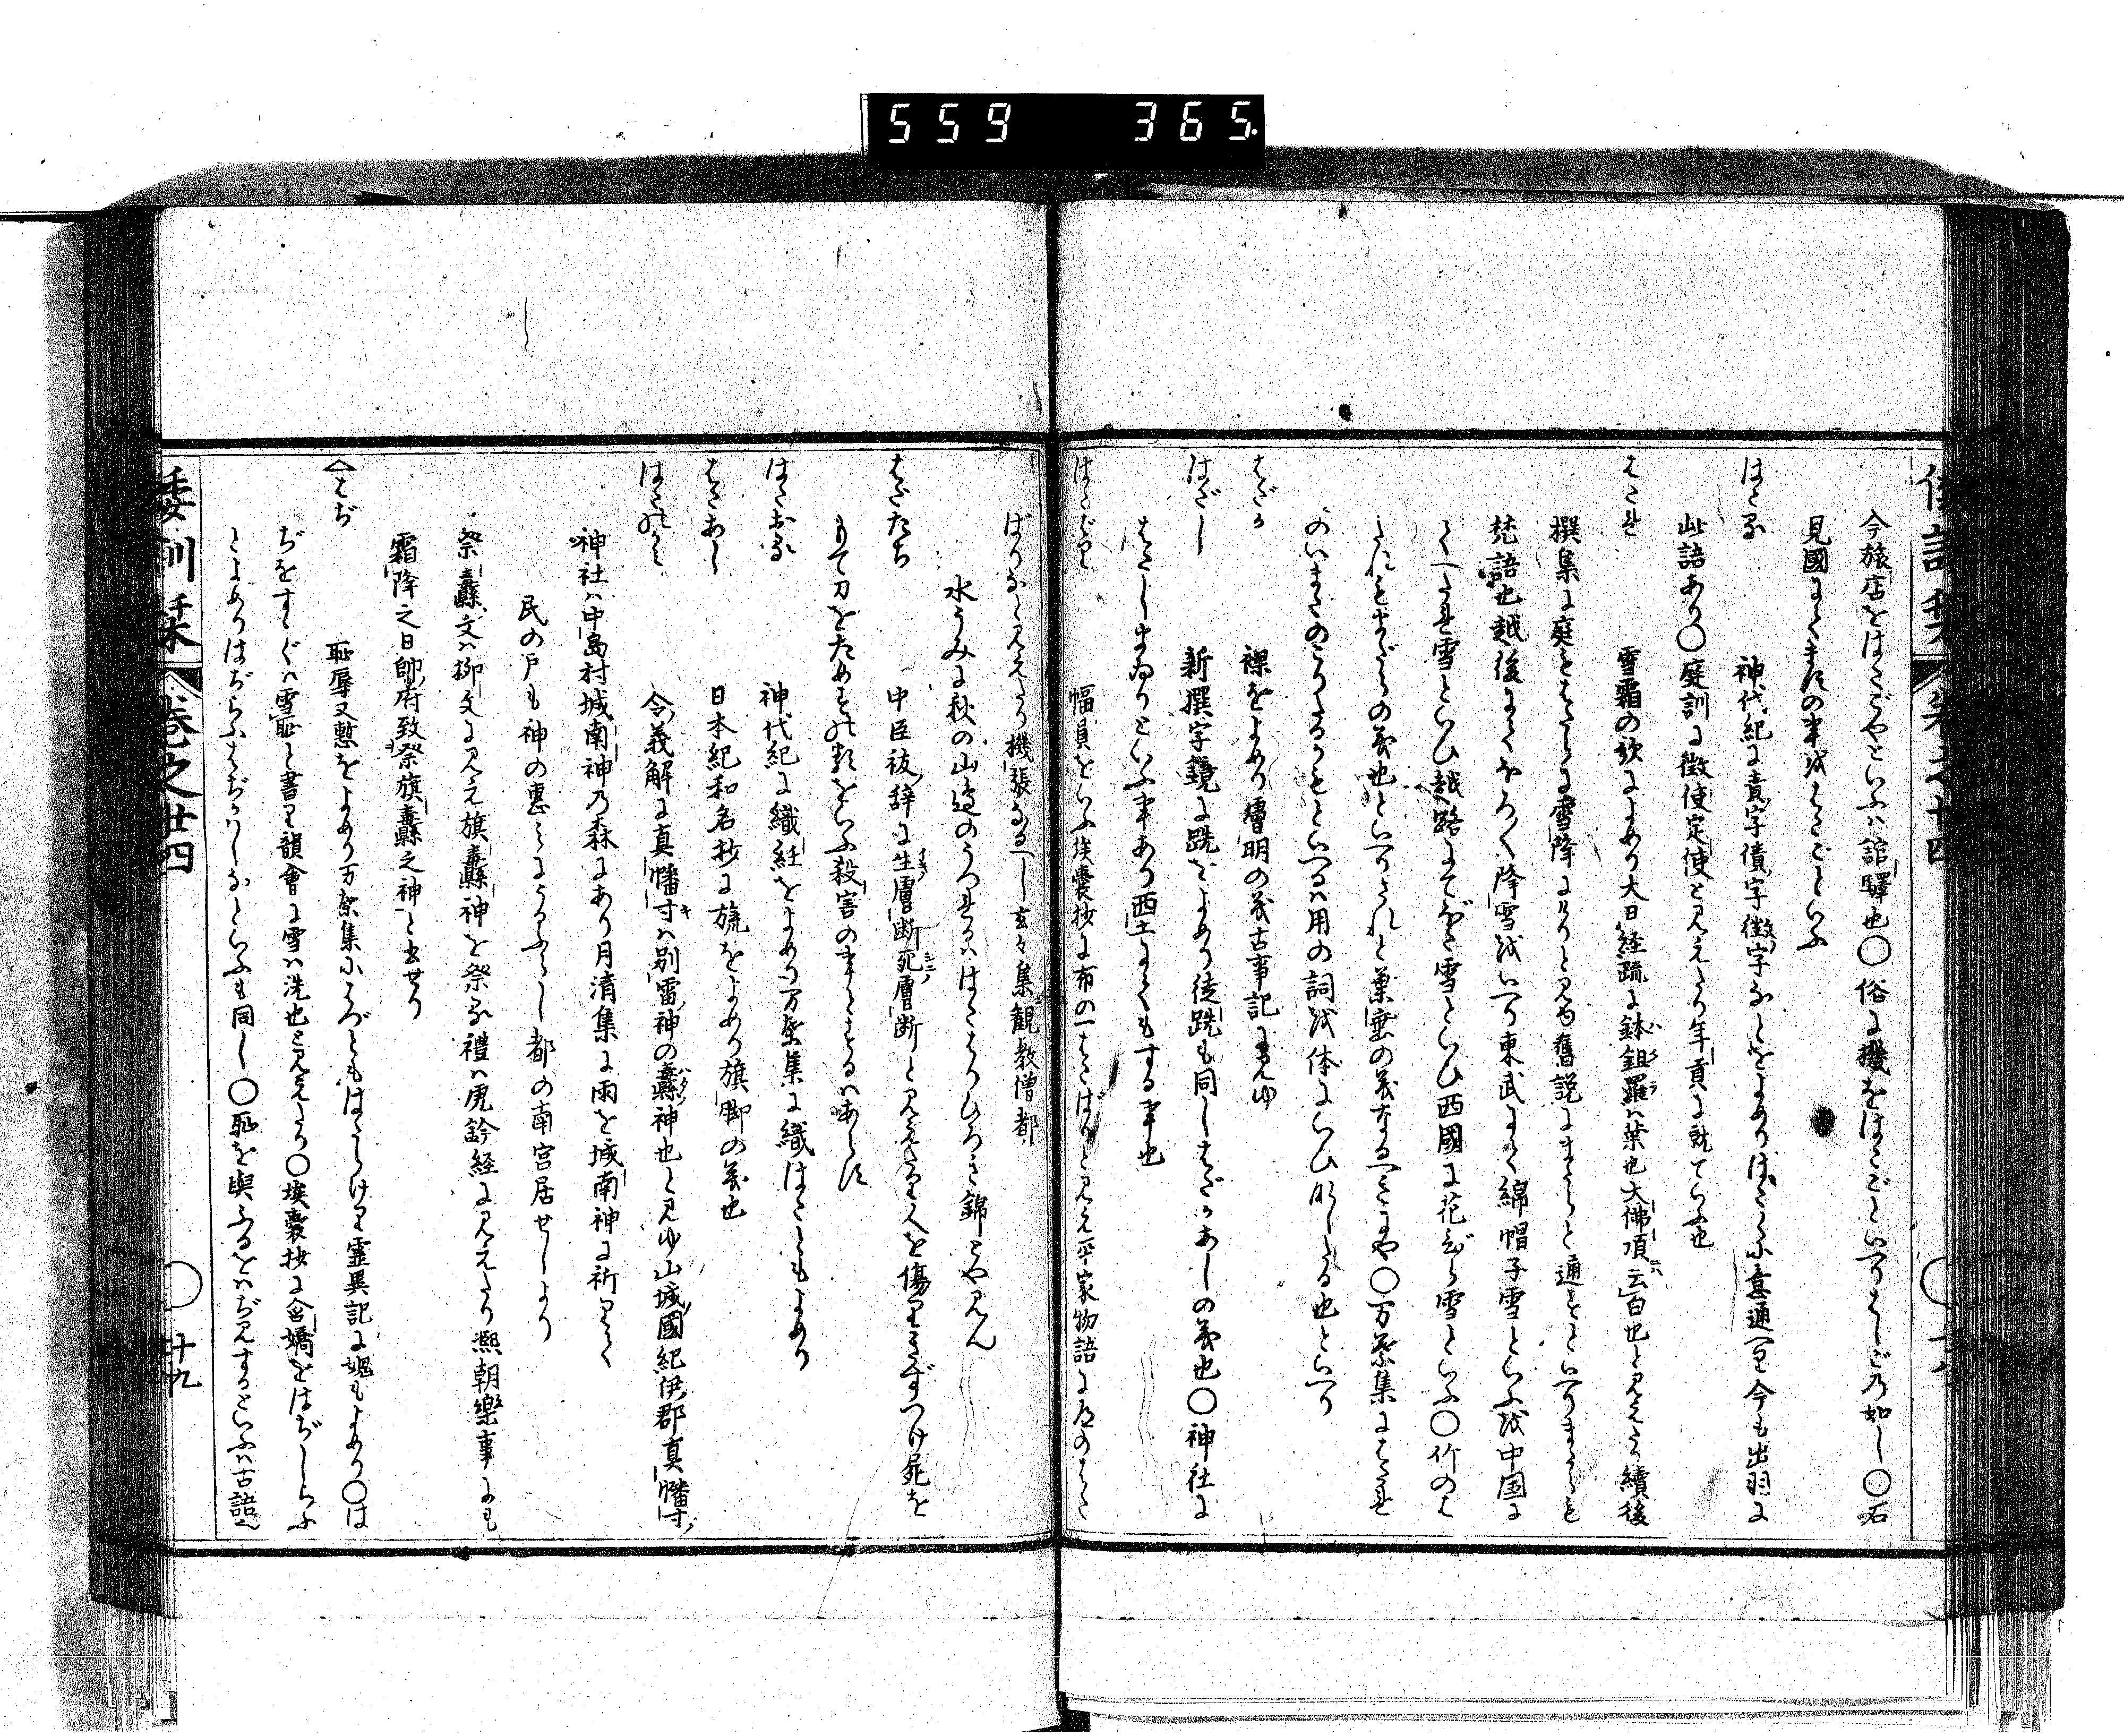 559 365
今旅店をはたごやといふハ舘驛也〇俗に機をはたごといへりはしご乃如し〇石
見國にてまにの事をはたごといふ
はたる 神代紀に責字債字徴字などをよめりはたく小意通へり今も出羽に
此語あり〇庭訓に徴使定使と見えたり年貢に就ていふ也
はたれ 雪霜の歌によめり大日経疏に鉢鉏羅ハ葉也大佛頂云白也と見えたり續後
撰集に庭もはたらに雪降にけりと見ゆ舊説にまだらと通ずといへりまだらも
梵語也越後にてあらく降雪をいへり東武にて綿帽子雪といふを中国に
てハたれ雪といひ越路にてぼた雪といひ西國に花びら雪といふ〇竹のは
たれもまだらの義也といへりされと葉垂の義なるへきにや〇万葉集にはたれ
のいまたのこりたるかもといへるハ用の詞を体にいひ形したる也といへり
はだか 裸をよめり膚明の義古事記に見ゆ
はだし 新撰字鏡に跣をよめり徒跣も同しはだかあしの義也〇神社に
はだしまゐりといふ事あり西土にてもする事也
はたばり 幅員をいふ埃嚢抄に布の一はたばりと見え平家物語に君のはた
ばりなと見えたり機張なるへし玄々集観教僧都
水うみに秋の山邊のうつれるハはたはりひろき錦とや見ん
はだたち 中臣祓辞に生膚断死膚断と見えたり人を傷りきずつけ屍を
もて刀をためすの類をいふ殺害のまとするハあらす
はたおる 神代紀に織紝をよめり万葉集に織はたともよめり
はたあし 日本紀和名抄に旒をよめり旗脚の義也
はたのかみ 令義解に真幡寸ハ別雷神の纛神也と見ゆ山城國紀伊郡真幡寸
神社ハ中島村城南神乃森にあり月清集に雨を城南神に祈りて
民の戸も神の恵にうるふらし都の南宮居せしより
祭纛文ハ柳文に見え旗纛神を祭る禮ハ虎鈐経に見えたり熙朝樂事にも
霜降之日帥府致祭旗纛之神と出せり
〈はぢ 恥辱又慙をよめり万葉集小はぢともはつらけり霊異記に媿もよめり〇は
ぢをすゝぐハ雪恥と書り韻會に雪ハ洗也と見えたり〇埃嚢抄に含嬌をはぢしらふ
とよめりはぢらふはぢかハしなといふも同し〇恥を與ふるをはぢ見するといふハ古語也
倭訓栞 巻之廿四 〇 廿九